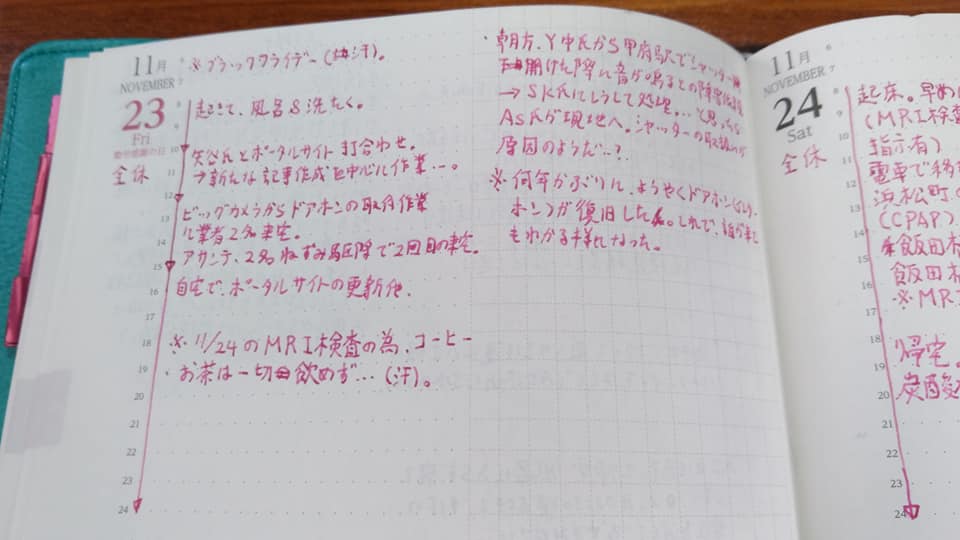 11月
NOVEMBER
23
Fri
勤労感謝の日
全休
6
7
8
9
10
11
12
13
14
15
16
17
18
19
20
21
22
23
24
※ブラックフライデー(汗)。
起きて、風呂&洗たく。
矢谷氏とポータルサイト打合わせ。
→新たな記事作成を中心に作業…。
ビックカメラからドアホンの取付作業
に業者2名来宅。
アサンテ、2名ねずみ駆除で2回目の来宅。
自宅で、ポータルサイトの更新他。
※11/24のMRI検査の為、コーヒー
お茶は一切飲めず…(汗)。
・朝方、Y中氏から甲府駅でシャッター
開けた際に音が鳴るとの障害
→SK氏にして処理。…と思ったら
AS氏が現地へ。シャッターの
原因のようだ…?
※何年かぶりに、ようやくドアホン
ホン)が復旧した。これで、誰が来て
もわかる様になった。
11月
NOVEMBER
24
Sat
全休
6
7
8
9
10
11
12
13
14
15
16
17
18
19
20
21
22
23
24
起床。早め
(MRI検査
指示有)
電車で移
浜松町の
(CPAP)
飯田木
飯田木
※MR
帰宅。
炭酸